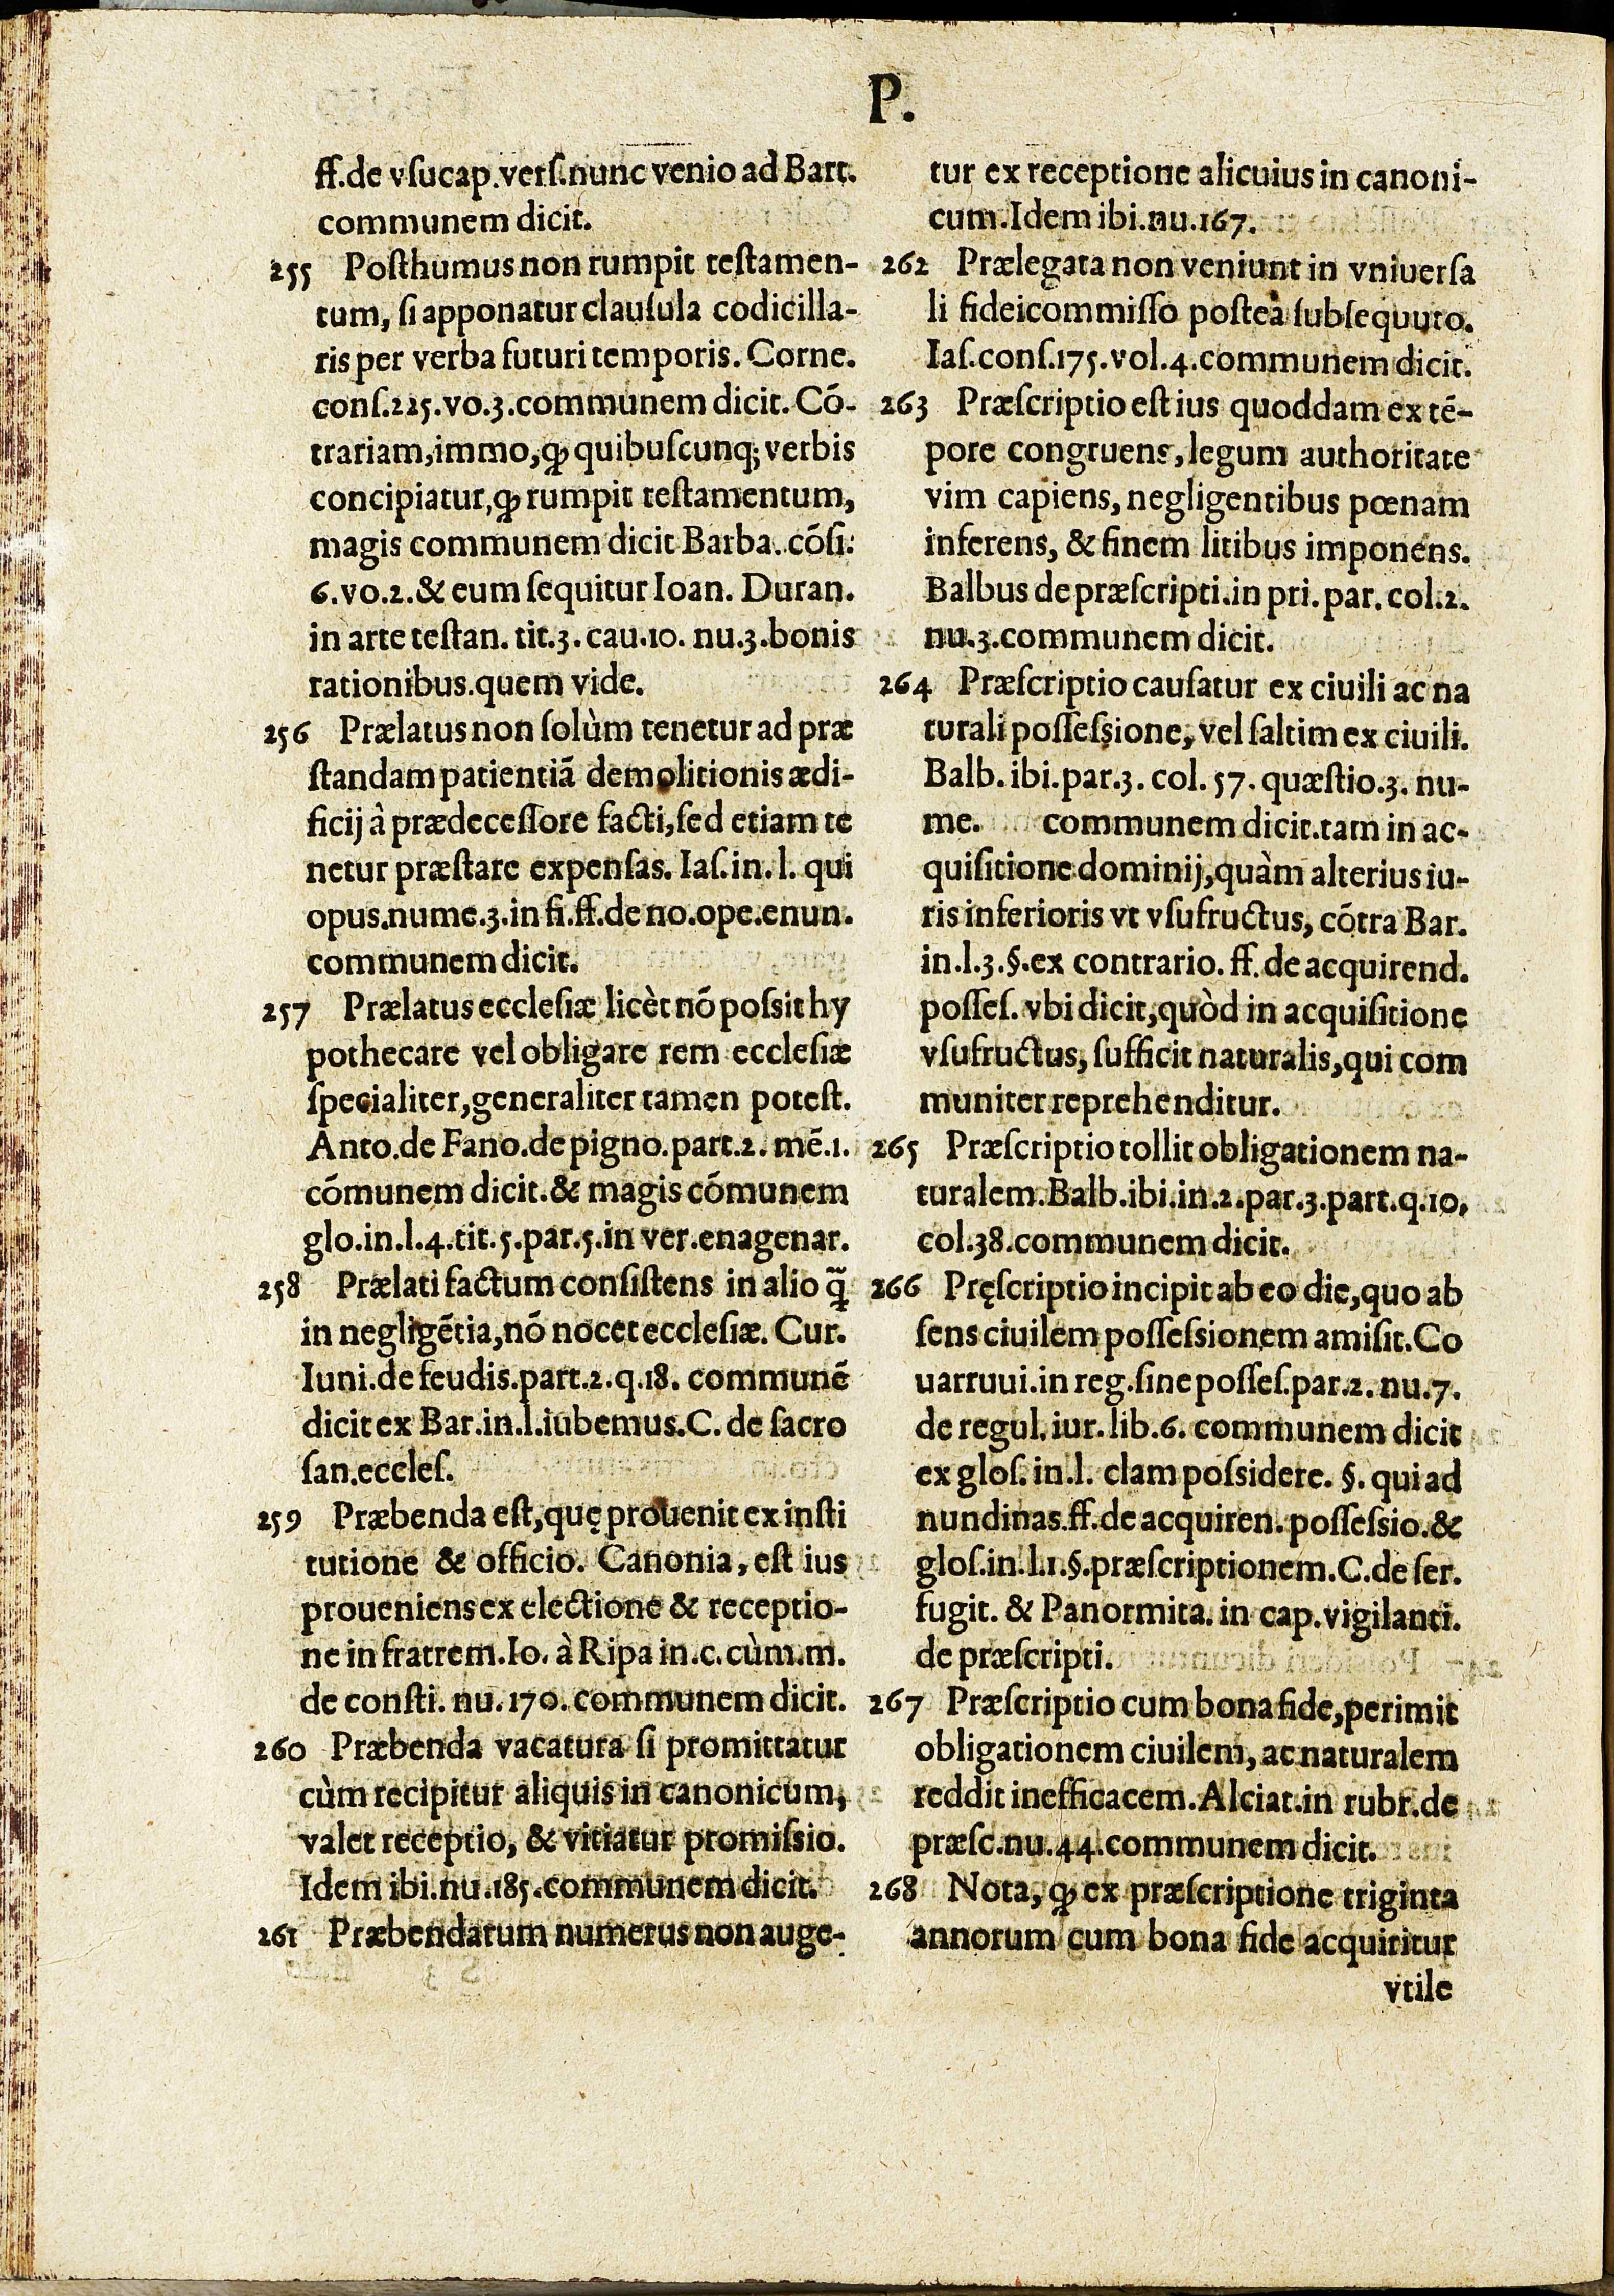 P.
ff.de vſucap.verſ.nunc venio ad Bart.
communem dicit.
255 Poſthumus non rumpit teſtamen-
tum, ſi apponatur clauſula codicilla-
ris per verba futuri temporis. Corne.
conſ.225.vo.3.communem dicit. Cõ-
trariam,immo,ꝙ quibuſcunq; verbis
concipiatur,ꝙ rumpit teſtamentum,
magis communem dicit Barba. cõſi.
6.vo.2.& eum ſequitur Ioan. Duran.
in arte teſtan. tit.3. cau.10. nu.3.bonis
rationibus.quem vide.
256 Prælatus non ſolùm tenetur ad præ
ſtandam patientiã demolitionis ædi-
ficij à prædeceſſore facti,ſed etiam te
netur præſtare expenſas. Iaſ.in.l. qui
opus.nume.3.in fi.ff.de no.ope.enun.
communem dicit.
257 Prælatus eccleſiæ licèt nõ poſsit hy
pothecare vel obligare rem eccleſiæ
ſpecialiter,generaliter tamen poteſt.
Anto.de Fano.de pigno.part.2. mẽ.1.
cõmunem dicit.& magis cõmunem
glo.in.l.4.tit.5.par.5.in ver.enagenar.
258 Prælati factum conſiſtens in alio q̃
in negligẽtia,nõ nocet eccleſiæ. Cur.
Iuni.de feudis.part.2.q.18. communẽ
dicit ex Bar.in.l.iubemus.C. de ſacro
ſan.eccleſ.
259 Præbenda eſt,quę prouenit ex inſti
tutione & officio. Canonia, eſt ius
proueniens ex electione & receptio-
ne in fratrem.Io. à Ripa in.c.cùm.m.
de conſti. nu.170.communem dicit.
260 Præbenda vacatura ſi promittatur
cùm recipitur aliquis in canonicum,
valet receptio, & vitiatur promiſsio.
Idem ibi.nu.185.communem dicit.
261 Præbendarum numerus non auge-
tur ex receptione alicuius in canoni-
cum.Idem ibi.nu.167.
262 Prælegata non veniunt in vniuerſa
li fideicommiſſo poſteà ſubſequuto.
Iaſ.conſ.175.vol.4.communem dicit.
263 Præſcriptio eſt ius quoddam ex tẽ-
pore congruens,legum authoritate
vim capiens, negligentibus pœnam
inferens, & finem litibus imponens.
Balbus de præſcripti.in pri.par.col.2.
nu.3.communem dicit.
264 Præſcriptio cauſatur ex ciuili ac na
turali poſſeſsione, vel ſaltim ex ciuili.
Balb. ibi.par.3. col. 57. quæſtio.3. nu-
me. communem dicit.tam in ac-
quiſitione dominij,quàm alterius iu-
ris inferioris vt vſufructus, cõtra Bar.
in.l.3.§.ex contrario. ff. de acquirend.
poſſeſ. vbi dicit,quòd in acquiſitione
vſufructus, ſufficit naturalis,qui com
muniter reprehenditur.
265 Præſcriptio tollit obligationem na-
turalem.Balb.ibi.in.2.par.3.part.q.10.
col.38.communem dicit.
266 Pręſcriptio incipit ab eo die,quo ab
ſens ciuilem poſſeſsionem amiſit.Co
uarruui.in reg.ſine poſſeſ.par.2. nu.7.
de regul. iur. lib.6. communem dicit
ex gloſ. in.l. clam poſsidere. §. qui ad
nundinas.ff.de acquiren. poſſeſsio.&
gloſ.in.l.1.§.præſcriptionem.C.de ſer.
fugit. & Panormita. in cap.vigilanti.
de præſcripti.
267 Præſcriptio cum bona fide,perimit
obligationem ciuilem, ac naturalem
reddit inefficacem.Alciat.in rubr.de
præſc.nu.44.communem dicit.
268 Nota, ꝙ ex præſcriptione triginta
annorum cum bona fide acquiritur
vtile